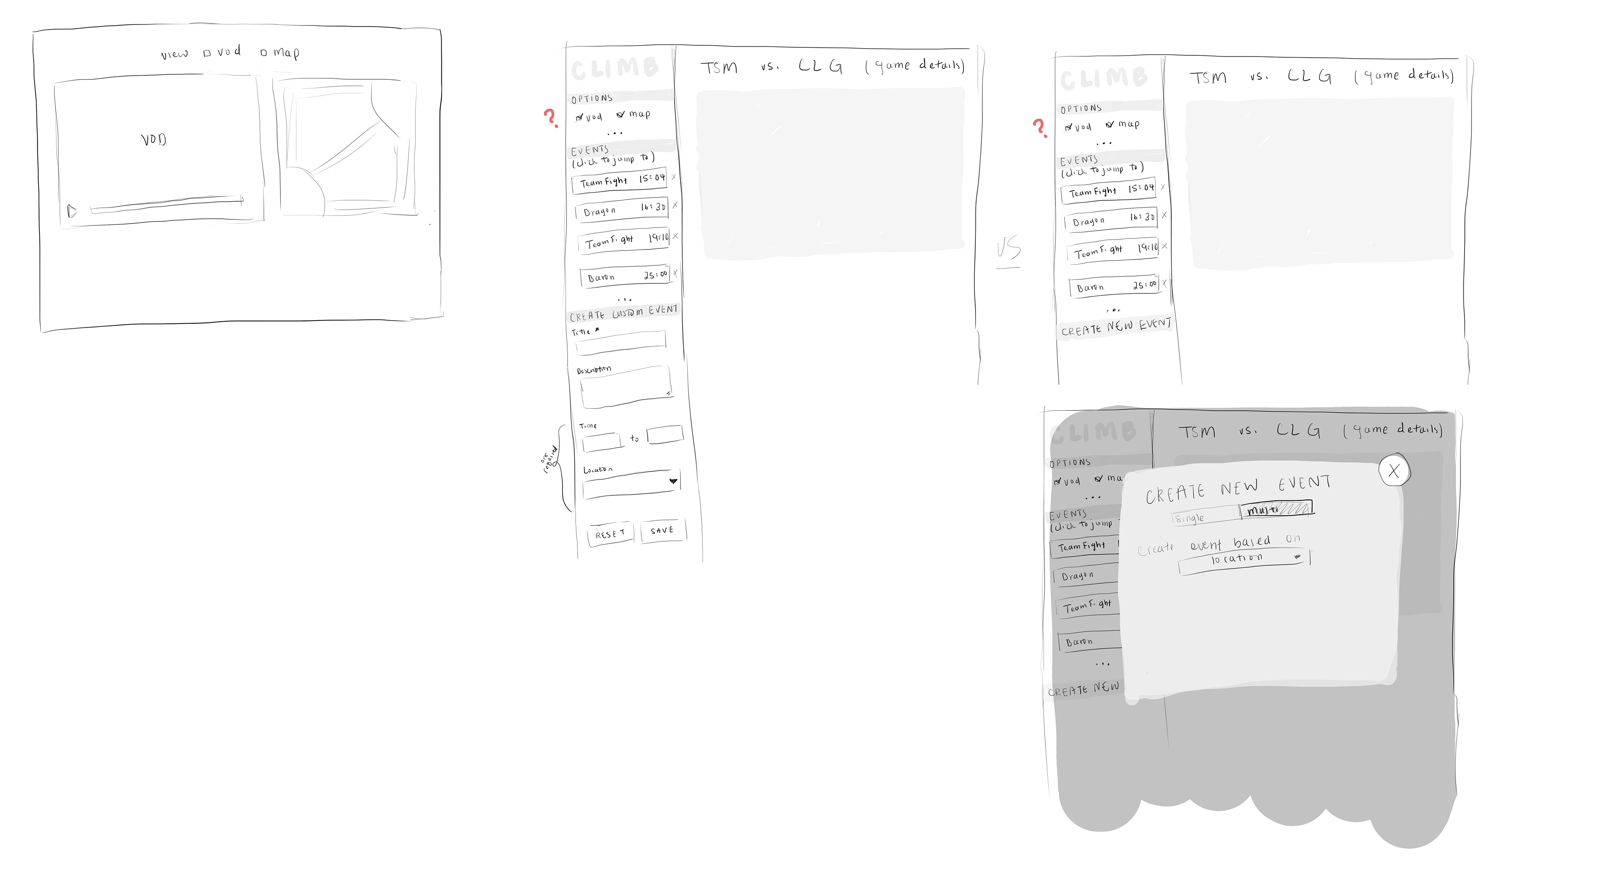 view vod map
VOD
CLIMB
OPTIONS
?
vod map
...
EVENTS
(click to jump to)
Team Fight 15:04 x
Dragon 16:30 x
Team Fight 19:10 x
Baron 25:00 x
...
CREATE CUSTOM EVENT
Title *
Description
Time
to
Location
one required
RESET SAVE
TSM vs. CLG (game details)
VS
CLIMB
OPTIONS
?
vod map
...
EVENTS
(click to jump to)
Team Fight 15:04 x
Dragon 16:30 x
Team Fight 19:10 x
Baron 25:00 x
...
CREATE NEW EVENT
TSM vs. CLG (game details)
CLIMB
OPTIONS
vod ma
...
EVENTS
(click to jump
Team Fight
Dragon
Team Fight
Baron
...
CREATE NEW
TSM vs. CLG (game details)
X
CREATE NEW EVENT
single multi
Create event based on
location